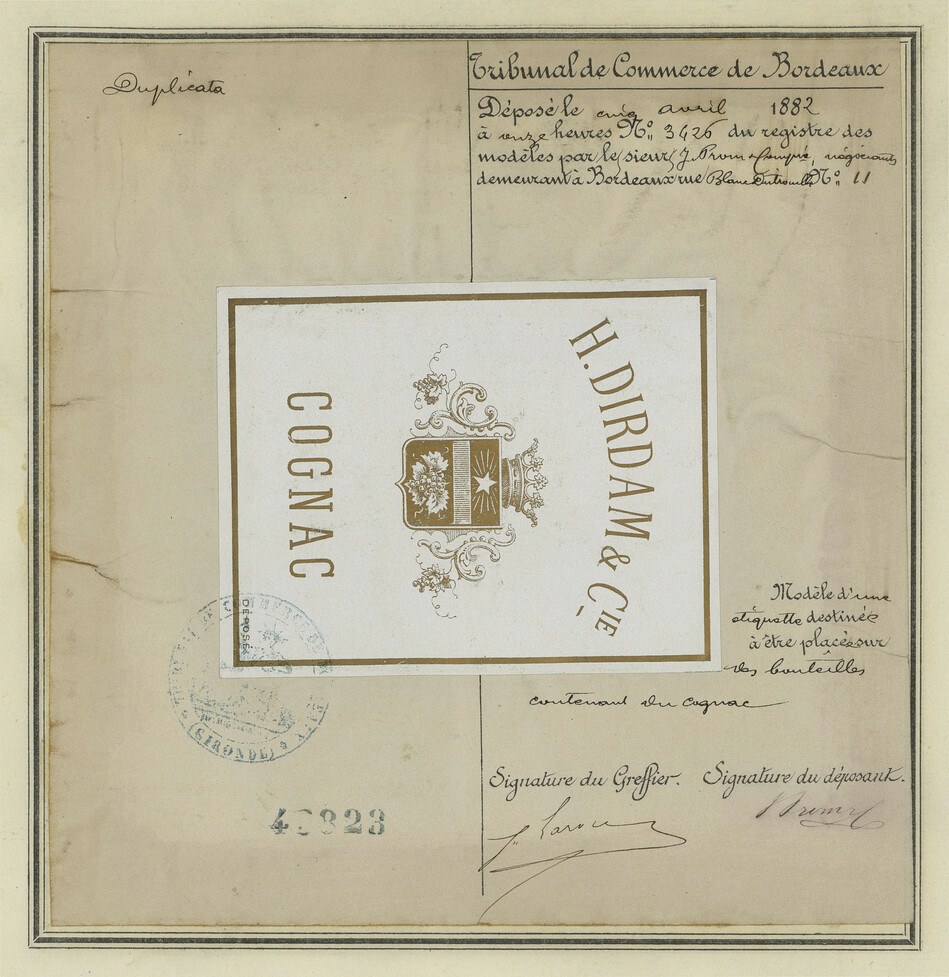 Duplicata
Tribunal de Commerce de Bordeaux
Déposé le cinq avril 1882
à onze heures N° 3426 du registre des
modèles par le sieur J. Prom & Compie, négociants
demeurant à Bordeaux rue Blanc Dutrouilh N° 11
H. DIRDAM & CIE
COGNAC
DÉPOSÉ
Modèle d'une
étiquette destinée
à être placée sur
des bouteilles
contenant du cognac
(GIRONDE)
Signature du Greffier. Signature du déposant.